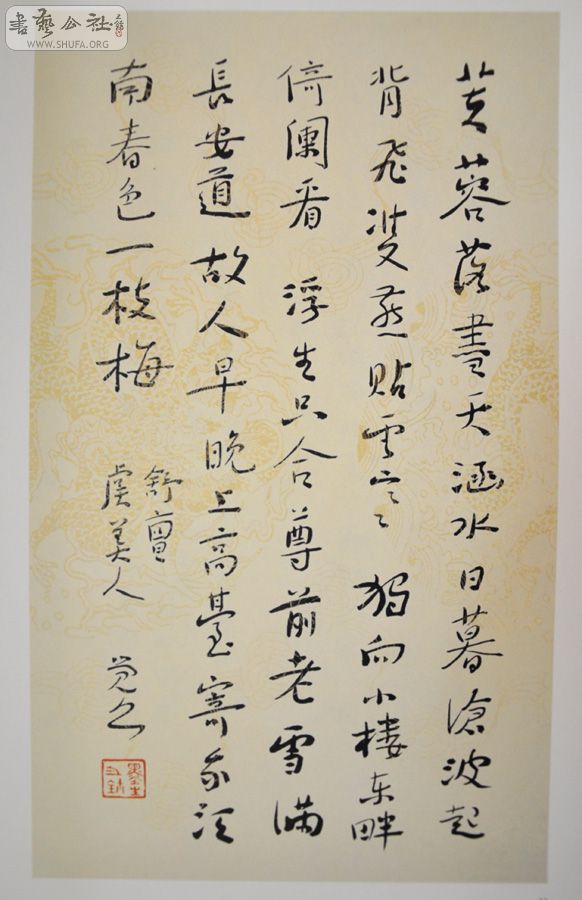 書藝公社
WWW.SHUFA.ORG
芙蓉落盡天涵水日暮滄波起
背飛雙燕貼雲寒獨向小樓東畔
倚闌看 浮生只合尊前老雪滿
長安道故人早晚上高臺寄我江
南春色一枝梅
舒亶
虞美人